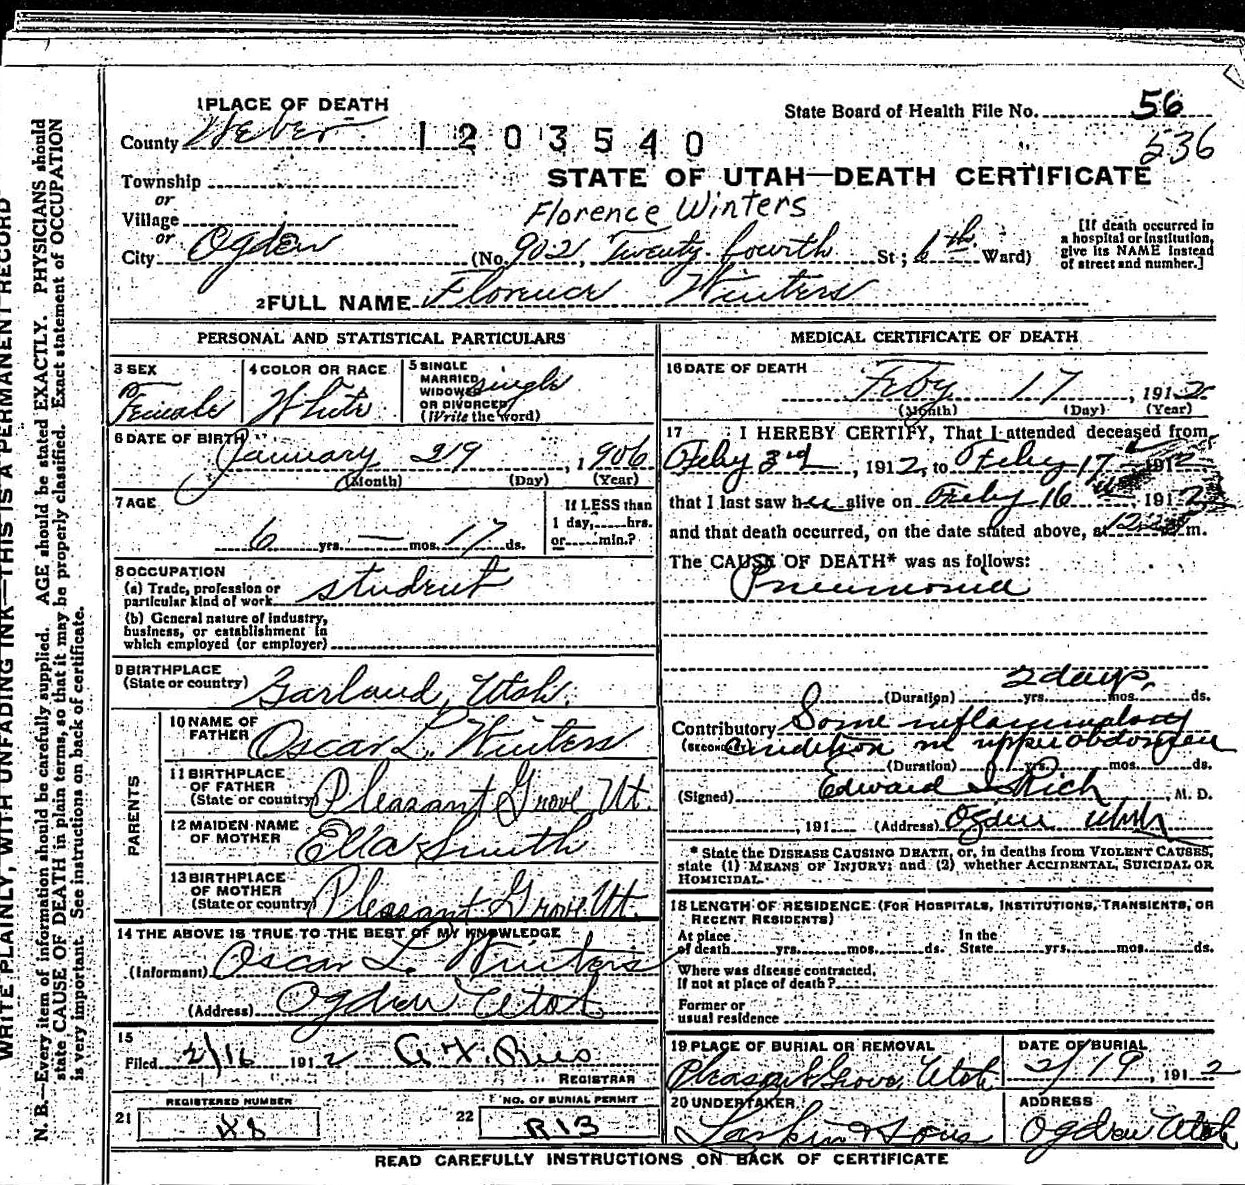 1 PLACE OF DEATH
State Board of Health File No. 56
County Weber 1203540
536
Township
STATE OF UTAH—DEATH CERTIFICATE
or
Village
Florence Winters
or
City Ogden (No. 902, Twenty fourth St; 6th Ward)
[If death occurred in a hospital or institution, give its NAME instead of street and number.]
2 FULL NAME Florence Winters
PERSONAL AND STATISTICAL PARTICULARS
3 SEX
Female
4 COLOR OR RACE
White
5 SINGLE
MARRIED
WIDOWED
OR DIVORCED
(Write the word)
single
6 DATE OF BIRTH
January 29, 1906
(Month) (Day) (Year)
7 AGE
6 yrs. — mos. 17 ds.
If LESS than
1 day, hrs.
or min.?
8 OCCUPATION
(a) Trade, profession or
particular kind of work student
(b) General nature of industry,
business, or establishment in
which employed (or employer)
9 BIRTHPLACE
(State or country) Garland, Utah.
PARENTS
10 NAME OF
FATHER Oscar L. Winters
11 BIRTHPLACE
OF FATHER
(State or country) Pleasant Grove Ut.
12 MAIDEN NAME
OF MOTHER Ella Smith
13 BIRTHPLACE
OF MOTHER
(State or country) Pleasant Grove Ut.
14 THE ABOVE IS TRUE TO THE BEST OF MY KNOWLEDGE
(Informant) Oscar L. Winters
(Address) Ogden Utah
15
Filed 2/16 1912
REGISTRAR
REGISTERED NUMBER
21 48
NO. OF BURIAL PERMIT
22 R13
MEDICAL CERTIFICATE OF DEATH
16 DATE OF DEATH
Feby 17, 1912
(Month) (Day) (Year)
17 I HEREBY CERTIFY, That I attended deceased from
Feby 3rd, 1912, to Feby 17 1912
that I last saw her alive on Feby 16 1912
and that death occurred, on the date stated above, at m.
The CAUSE OF DEATH* was as follows:
Pneumonia
2 days.
(Duration) yrs. mos. ds.
Contributory Some inflammatory
condition in upper abdomen
(Duration) yrs. mos. ds.
(Signed) Edward I Rich, M. D.
, 191 (Address) Ogden Utah
* State the DISEASE CAUSING DEATH, or, in deaths from VIOLENT CAUSES,
state (1) MEANS OF INJURY; and (2) whether ACCIDENTAL, SUICIDAL OR
HOMICIDAL.
18 LENGTH OF RESIDENCE (FOR HOSPITALS, INSTITUTIONS, TRANSIENTS, OR
RECENT RESIDENTS)
At place
of death yrs. mos. ds.
In the
State yrs. mos. ds.
Where was disease contracted,
If not at place of death?
Former or
usual residence
19 PLACE OF BURIAL OR REMOVAL
Pleasant Grove, Utah
DATE OF BURIAL
2/19, 1912
20 UNDERTAKER
Larkin & Sons
ADDRESS
Ogden Utah
READ CAREFULLY INSTRUCTIONS ON BACK OF CERTIFICATE
WRITE PLAINLY, WITH UNFADING INK—THIS IS A PERMANENT RECORD
N. B.—Every item of information should be carefully supplied. AGE should be stated EXACTLY. PHYSICIANS should
state CAUSE OF DEATH in plain terms, so that it may be properly classified. Exact statement of OCCUPATION
is very important. See instructions on back of certificate.